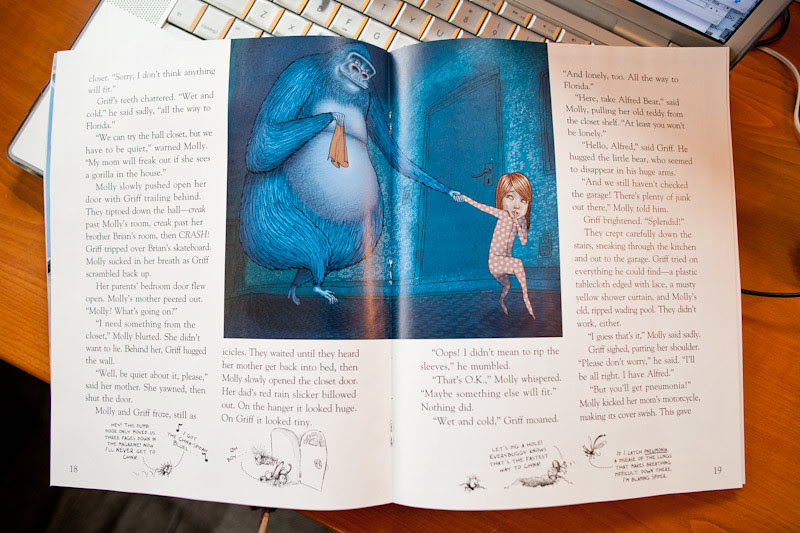 closet. “Sorry, I don’t think anything
will fit.”
Griff’s teeth chattered. “Wet and
cold,” he said sadly, “all the way to
Florida.”
“We can try the hall closet, but we
have to be quiet,” warned Molly.
“My mom will freak out if she sees
a gorilla in the house.”
Molly slowly pushed open her
door with Griff trailing behind.
They tiptoed down the hall—creak
past Molly’s room, creak past her
brother Brian’s room, then CRASH!
Griff tripped over Brian’s skateboard.
Molly sucked in her breath as Griff
scrambled back up.
Her parents’ bedroom door flew
open. Molly’s mother peered out.
“Molly? What’s going on?”
“I need something from the
closet,” Molly blurted. She didn’t
want to lie. Behind her, Griff hugged
the wall.
“Well, be quiet about it, please,”
said her mother. She yawned, then
shut the door.
Molly and Griff froze, still as
icicles. They waited until they heard
her mother get back into bed, then
Molly slowly opened the closet door.
Her dad’s red rain slicker billowed
out. On the hanger it looked huge.
On Griff it looked tiny.
HEY! THIS DUMB
DOOR ONLY MOVED US
THREE PAGES DOWN IN
THE MAGAZINE! NOW
I’LL NEVER GET TO
CHINA!
I GOT
THE CHINA-SPYAH
BLUES
18
“Oops! I didn’t mean to rip the
sleeves,” he mumbled.
“That’s O.K.,” Molly whispered.
“Maybe something else will fit.”
Nothing did.
“Wet and cold,” Griff moaned.
“And lonely, too. All the way to
Florida.”
“Here, take Alfred Bear,” said
Molly, pulling her old teddy from
the closet shelf. “At least you won’t
be lonely.”
“Hello, Alfred,” said Griff. He
hugged the little bear, who seemed
to disappear in his huge arms.
“And we still haven’t checked
the garage! There’s plenty of junk
out there,” Molly told him.
Griff brightened. “Splendid!”
They crept carefully down the
stairs, sneaking through the kitchen
and out to the garage. Griff tried on
everything he could find—a plastic
tablecloth edged with lace, a musty
yellow shower curtain, and Molly’s
old, ripped wading pool. They didn’t
work, either.
“I guess that’s it,” Molly said sadly.
Griff sighed, patting her shoulder.
“Please don’t worry,” he said. “I’ll
be all right. I have Alfred.”
“But you’ll get pneumonia!”
Molly kicked her mom’s motorcycle,
making its cover swash. This gave
LET’S DIG A HOLE!
EVERYBUGGY KNOWS
THAT’S THE FASTEST
WAY TO CHINA!
IF I CATCH PNEUMONIA,
A DISEASE OF THE LUNGS
THAT MAKES BREATHING
DIFFICULT, DOWN THERE,
I’M BLAMING SPYDER.
19